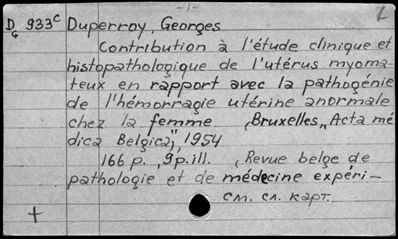 -1-
D 933c Duperroy, Georges
G
Contribution à l'étude clinique et
histopathologique de l'utérus myoma-
teux en rapport avec la pathogénie
de l'hémorragie utérine anormale
chez la femme, Bruxelles, „Acta mé
dica Belgica", 1954
166 p., 9 p. ill., Revue belge de
pathologie et de médecine expéri-
см. сл. карт.